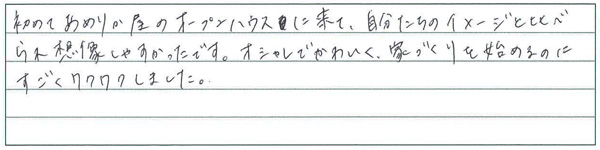 初めてあめりか屋のオープンハウスに来て、自分たちのイメージとくらべ
られ想像しやすかったです。オシャレでかわいく、家づくりを始めるのに
すごくワクワクしました。